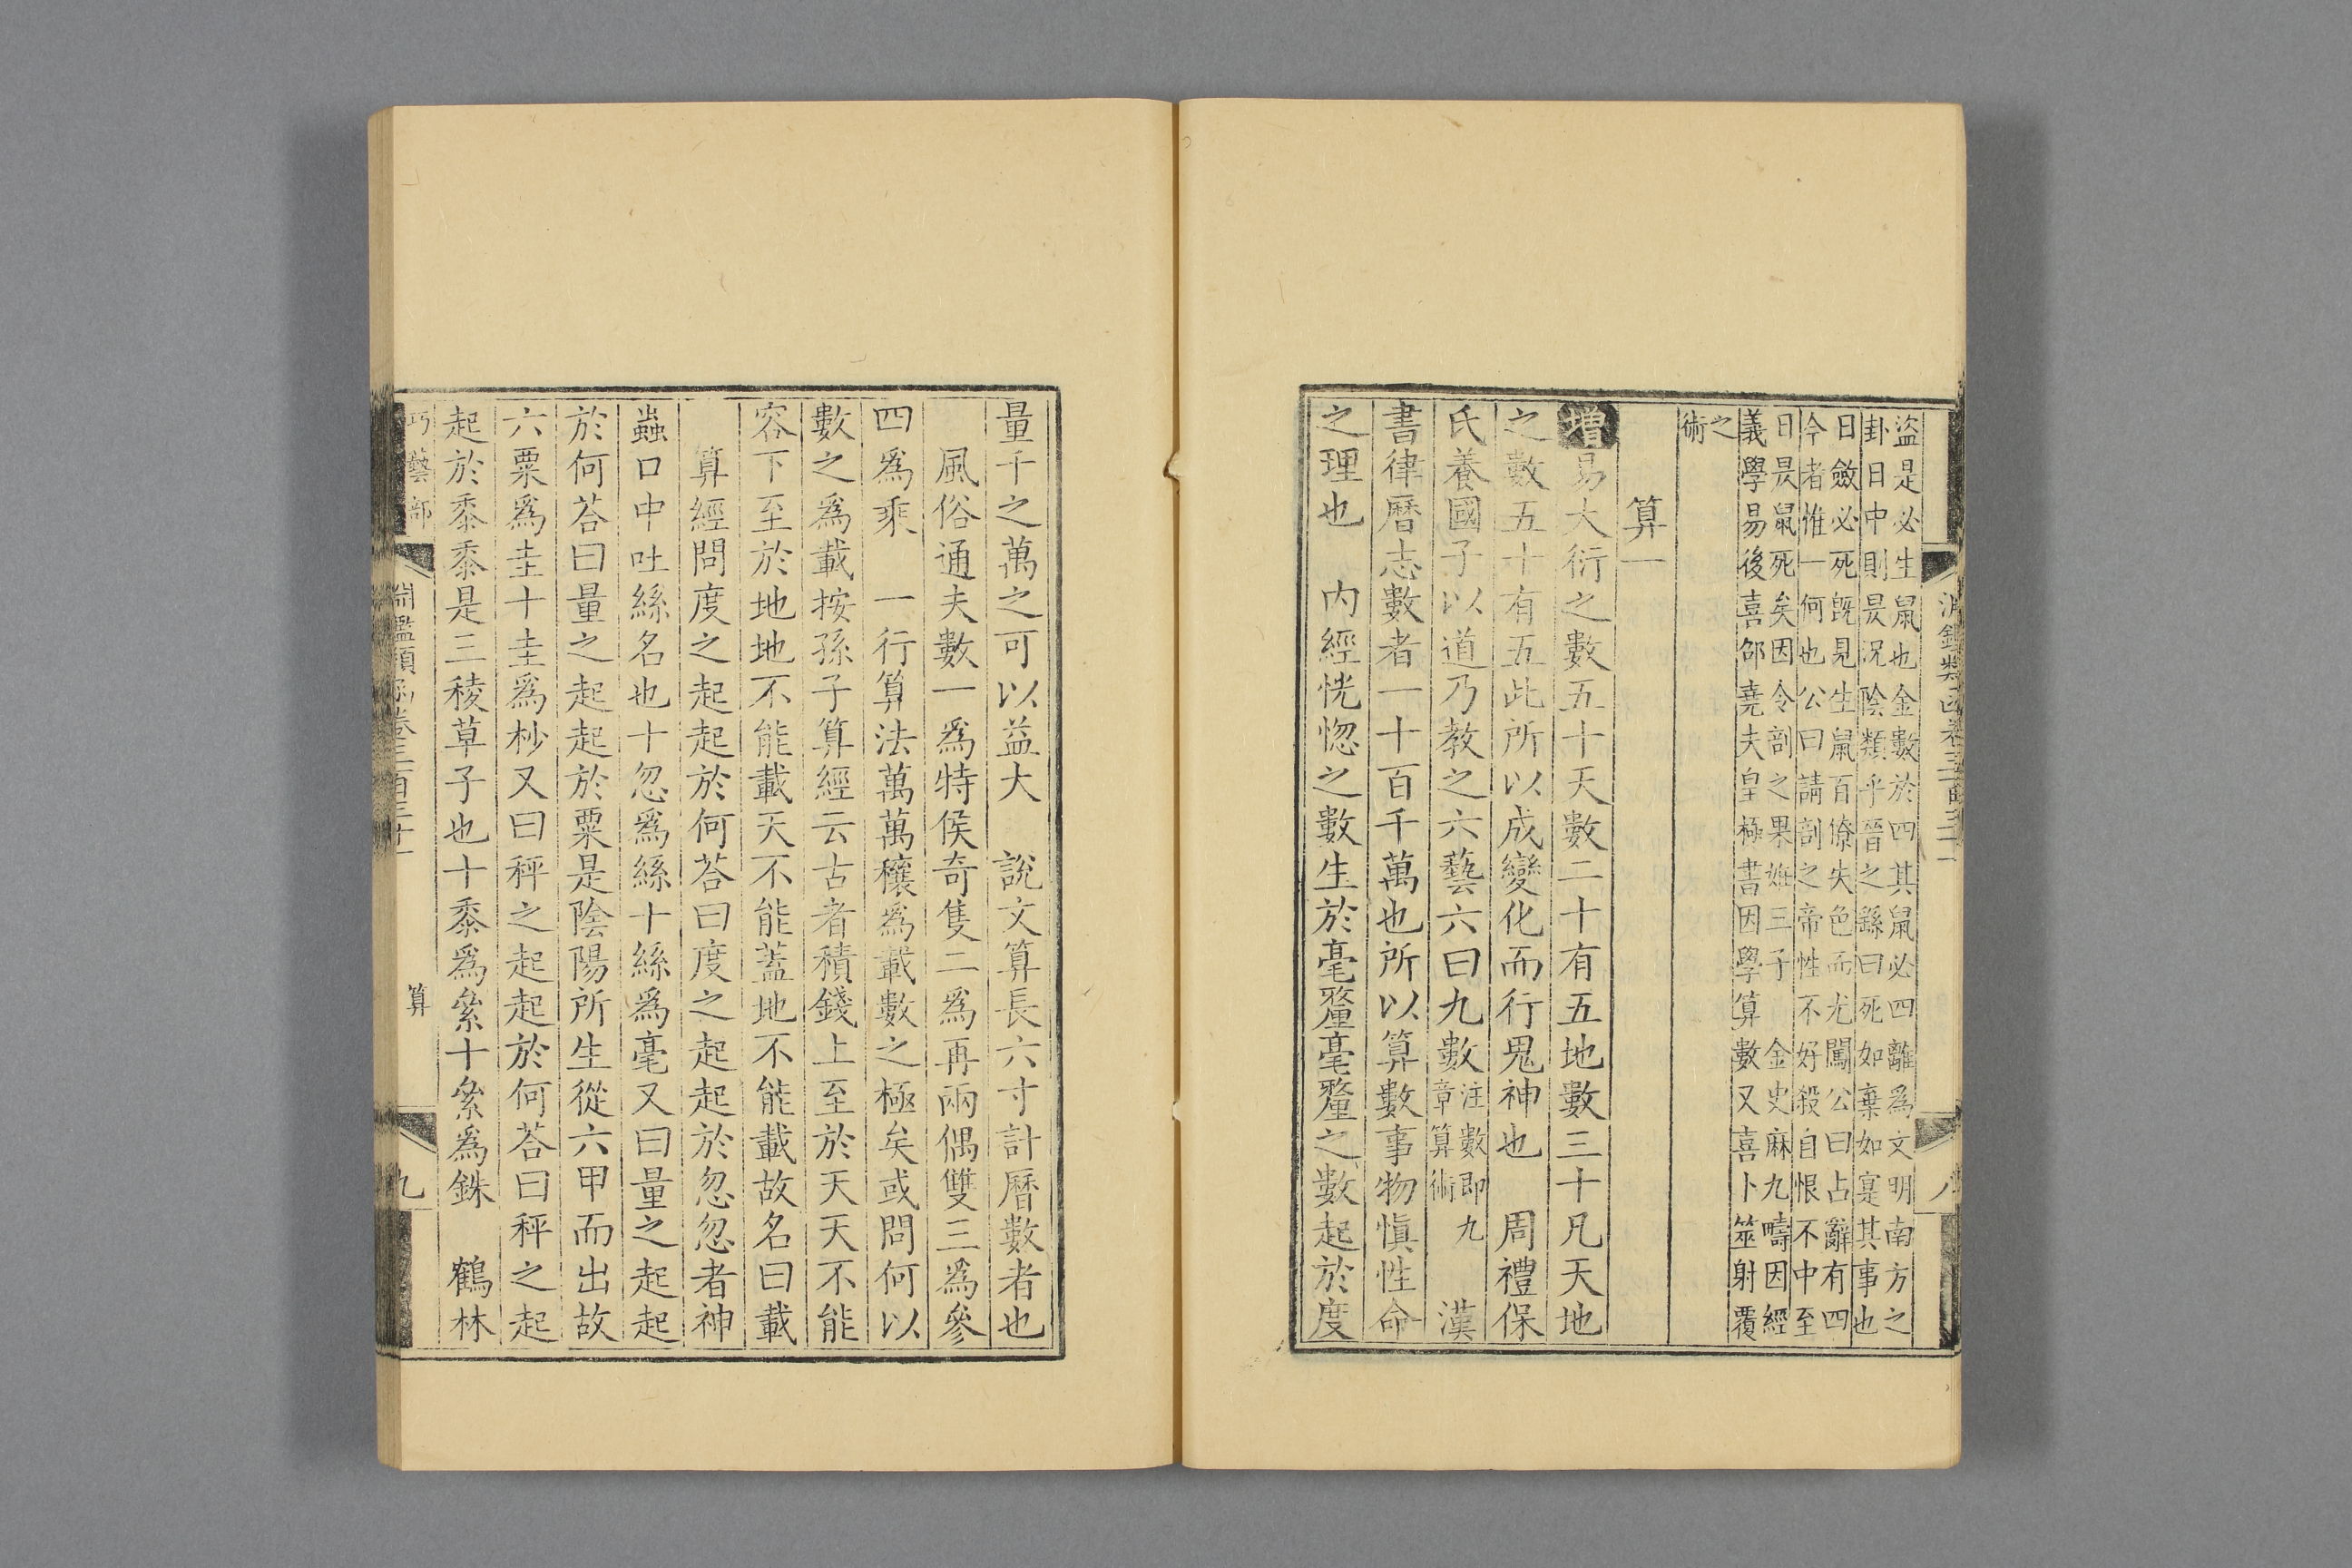 盜是必生鼠也金數於四其鼠必四離為文明南方之
卦日中則昃況陰類乎晉之繇曰死如棄如寔其事也
日斂必死旣見生鼠百僚失色而尤闖公曰占辭有四
今者惟一何也公曰請剖之帝性不好殺自恨不中至
日昃鼠死矣因令剖之果姙三子 金史麻九疇因經
義學易後喜邵堯夫皇極書因學算數又喜卜筮射覆
之
術
算一
增易大衍之數五十天數二十有五地數三十凡天地
之數五十有五此所以成變化而行鬼神也 周禮保
氏養國子以道乃教之六藝六曰九數注數即九章算術 漢
書律曆志數者一十百千萬也所以算數事物愼性命
之理也 內經恍惚之數生於毫釐毫釐之數起於度
八
量千之萬之可以益大 說文算長六寸計曆數者也
風俗通夫數一爲特侯奇隻二爲再兩偶雙三爲參
四爲乘 一行算法萬萬穰爲載數之極矣或問何以
數之爲載按孫子算經云古者積錢上至於天天不能
容下至於地地不能載天不能蓋地不能載故名曰載
算經問度之起起於何荅曰度之起起於忽忽者神
蟲口中吐絲名也十忽爲絲十絲爲毫又曰量之起起
於何荅曰量之起起於粟是陰陽所生從六甲而出故
六粟爲圭十圭爲杪又曰秤之起起於何荅曰秤之起
起於黍黍是三稜草子也十黍爲絫十絫爲銖 鶴林
巧藝部 淵鑑類函卷三百三十一 算 九